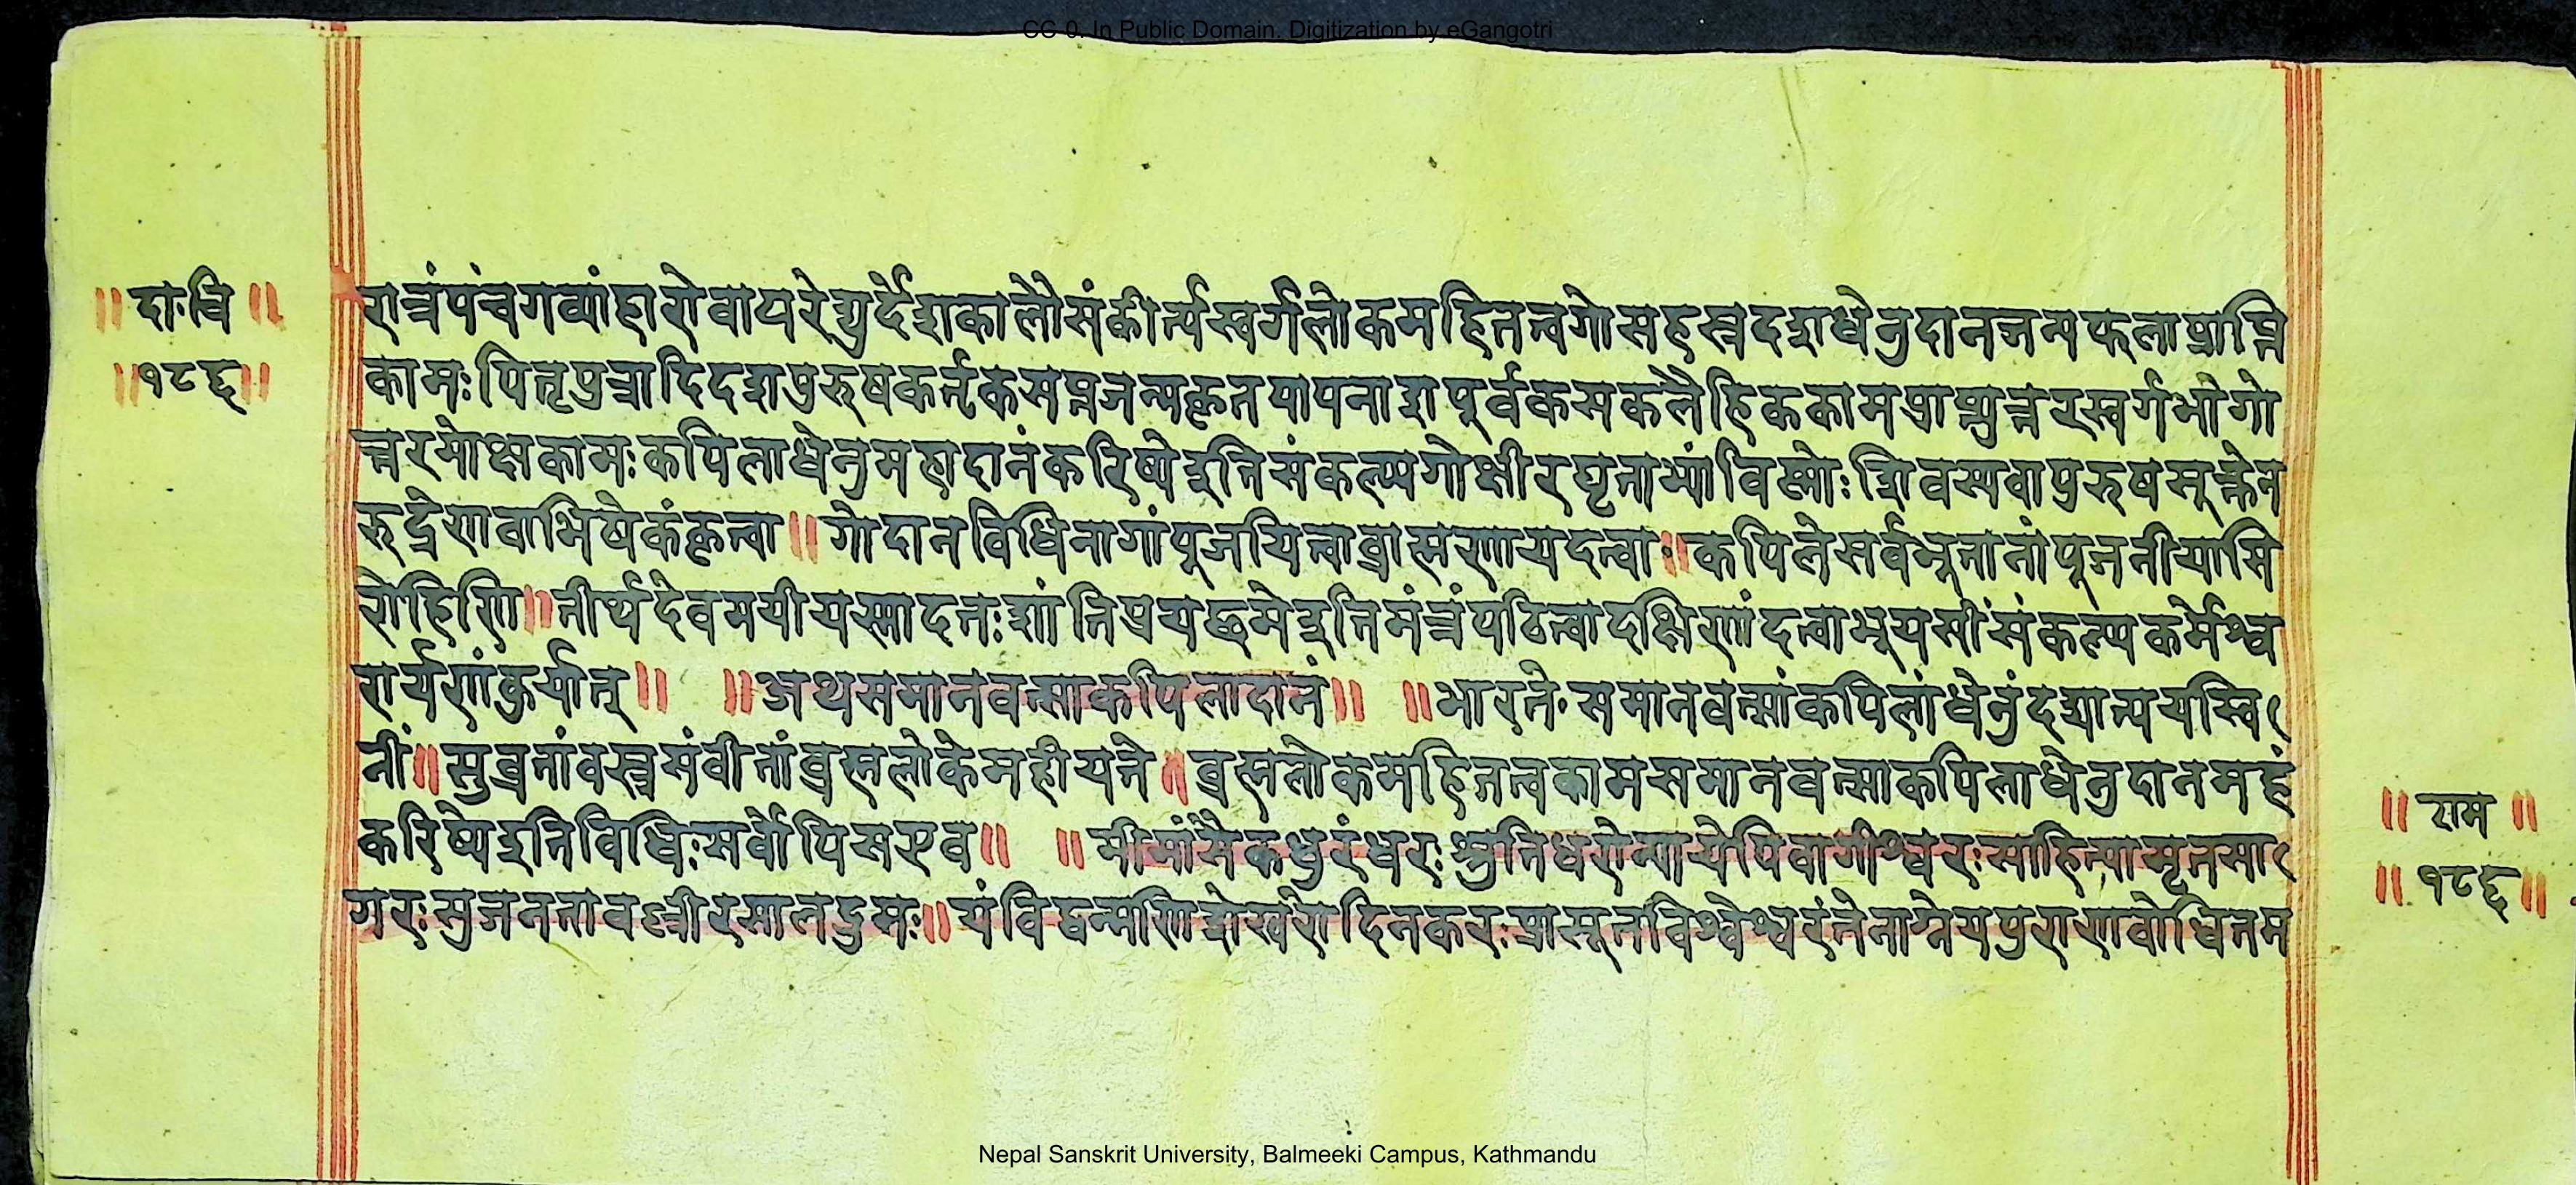 CC-0. In Public Domain. Digitization by eGangotri
॥ दा॰वि ॥
॥१८६॥
रात्रंपंचगव्यांहारोवापरेद्युर्देशकालौसंकीर्त्यस्वर्गलोकमहितत्वगोसहस्रदशधेनुदानजन्यफलाप्राप्ति
कामःपितृपुत्रादिदशपुरुषकर्तृकसप्तजन्मकृतपापनाशपूर्वकसकलैहिककामप्राप्त्युत्तरस्वर्गभोगो
त्तरमोक्षकामःकपिलाधेनुमहादानंकरिष्येइतिसंकल्प्यगोक्षीरघृताभ्यांविष्णोःशिवस्यवापुरुषसूक्तेन
रुद्रेणवाभिषेकंकृत्वा॥गोदानविधिनागांपूजयित्वाब्राह्मणायदत्वा॥कपिलेसर्वभूतानांपूजनीयासि
रोहिणि॥तीर्थदेवमयीयस्मादतःशांतिप्रयच्छमेइतिमंत्रंपठित्वादक्षिणांदत्वाभूयसींसंकल्प्यकर्मेश्व
रार्पणंकुर्यात्॥ ॥अथसमानवत्साकपिलादानं॥ ॥भारते॰समानवत्सांकपिलांधेनुंदद्यात्पयस्वि
नीं॥सुव्रतांवस्त्रसंवीतांब्रह्मलोकेमहीयते॥ब्रह्मलोकमहितत्वकामसमानवत्साकपिलाधेनुदानमहं
करिष्येइतिविधिःसर्वोपिसएव॥ ॥मीमांसैकधुरंधरःश्रुतिधरोन्यायेपिवागीश्वरःसाहित्यामृतसा
गरःसुजनतावश्रीरसालद्रुमः॥यंविद्वन्मणिशेखरोदिनकरःप्रासूतविश्वेश्वरंतेनाग्नेयपुराणबोधितम
॥ राम ॥
॥ १८६॥
Nepal Sanskrit University, Balmeeki Campus, Kathmandu